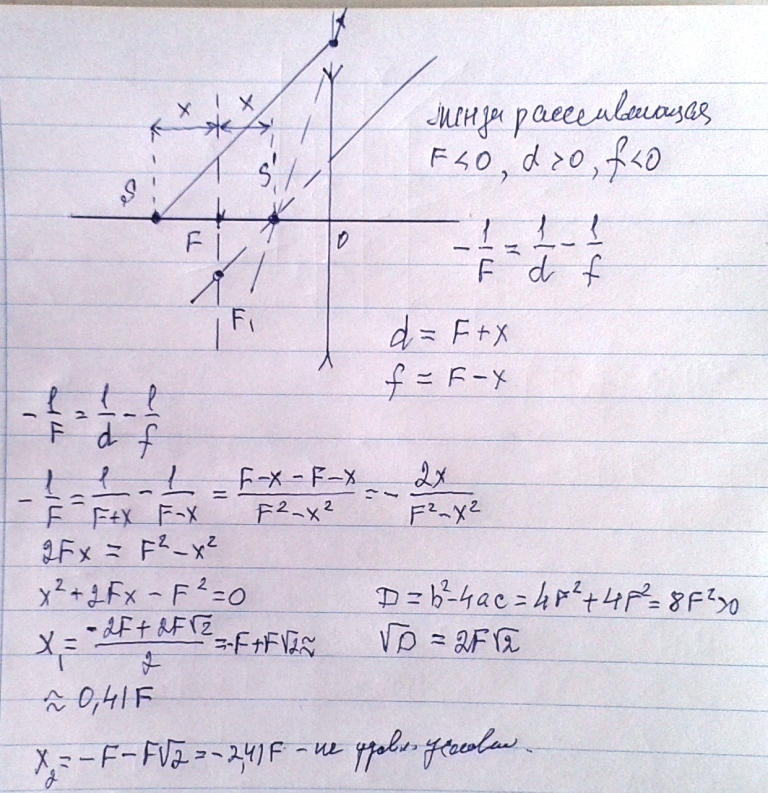 x x
S S' F O
F₁
линза рассеивающая
F<0, d>0, f<0
-1/F = 1/d - 1/f
d = F+x
f = F-x
-1/F = 1/d - 1/f
-1/F = 1/(F+x) - 1/(F-x) = (F-x-F-x)/(F²-x²) = -2x/(F²-x²)
2Fx = F²-x²
x²+2Fx-F²=0 D=b²-4ac=4F²+4F²=8F²>0
x₁ = (-2F+2F√2)/2 = -F+F√2≈ √D = 2F√2
≈ 0,41F
x₂ = -F-F√2 = -2,41F - не удовл. условию.